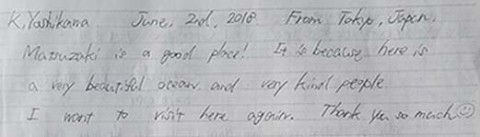 K.Yoshikawa June, 2nd, 2018 From Tokyo, Japan.
Matsuzaki is a good place! It is because here is
a very beautiful ocean and very kind people
I want to visit here again. Thank you so much☺